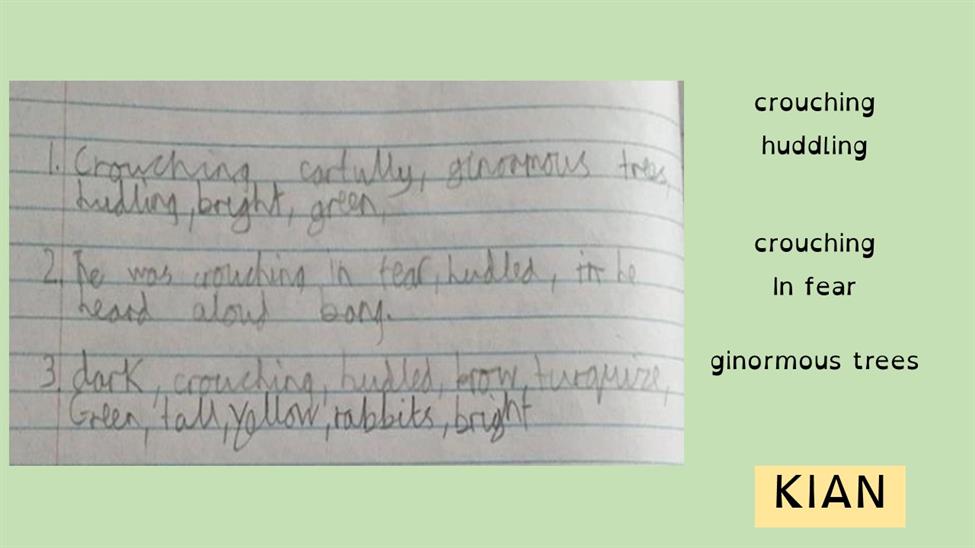 1. Crouching carfully, ginormous trees,
hudling, bright, green,
2. he was crouching in fear, hudled, in he
heard aloud bang.
3. dark, crouching, hudled, brow, turquize,
Green, tall, yellow, rabbits, bright
crouching
huddling
crouching
In fear
ginormous trees
KIAN